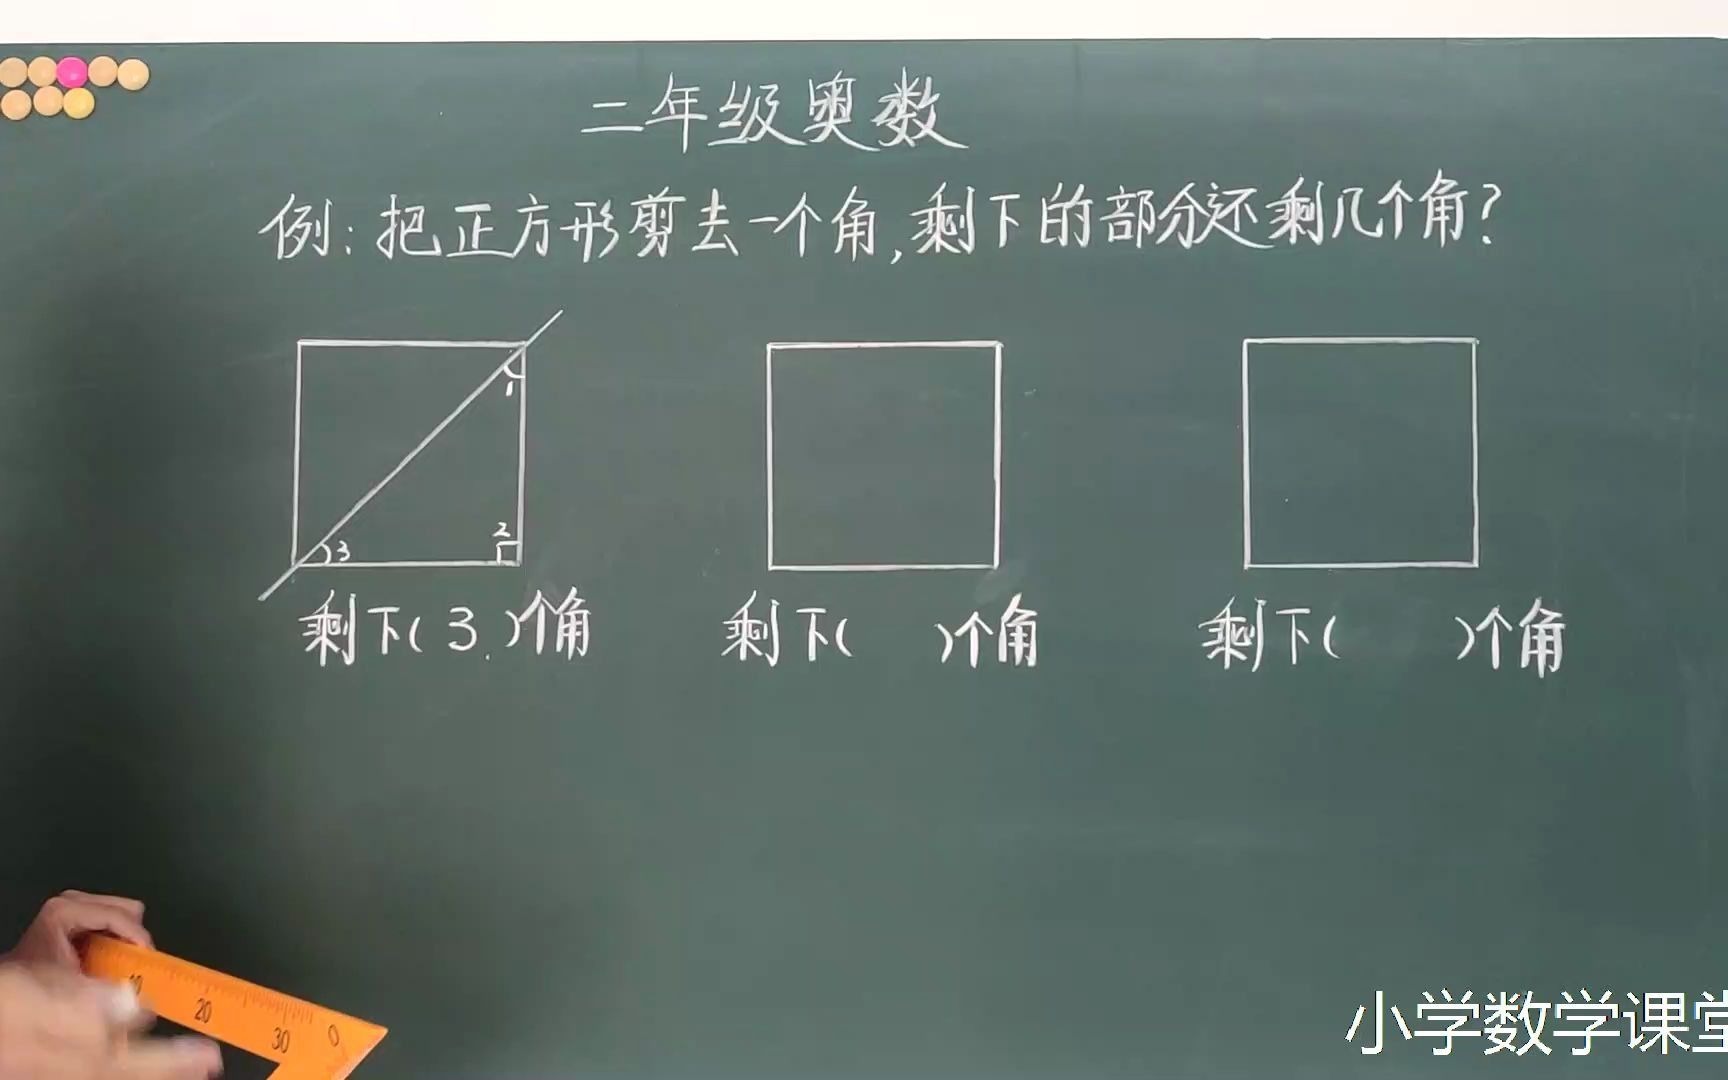 二年级奥数
例:把正方形剪去一个角,剩下的部分还剩几个角?
1
2
3
剩下(3.)个角 剩下( )个角 剩下( )个角
20
30
0
小学数学课堂